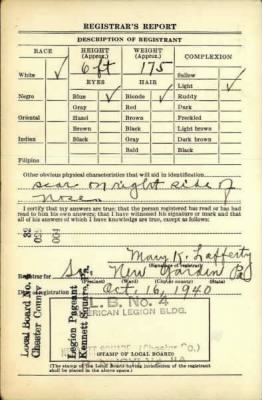 REGISTRAR'S REPORT
DESCRIPTION OF REGISTRANT
RACE HEIGHT (Approx.) WEIGHT (Approx.) COMPLEXION
6 ft 175 Sallow
White ✓ EYES HAIR Light ✓
Negro Blue ✓ Blonde ✓ Ruddy
Gray Red Dark
Oriental Hazel Brown Freckled
Brown Black Light brown
Indian Black Gray Dark brown
Bald Black
Filipino
Other obvious physical characteristics that will aid in identification
scar on right side of
nose.
I certify that my answers are true; that the person registered has read or has had
read to him his own answers; that I have witnessed his signature or mark and that
all of his answers of which I have knowledge are true, except as follows:
32
029
004
Mary K. Lafferty
(Signature of registrar)
Registrar for New Garden
(Precinct) (Ward) (City or county) (State)
Date of registration Oct. 16, 1940
Local Board No. 4
Chester County
Legion Pageant
Kennett Square, Pa.
L. B. No. 4
AMERICAN LEGION BLDG.
(STAMP OF LOCAL BOARD)
(The stamp of the Local Board having jurisdiction of the registrant
shall be placed in the above space.)